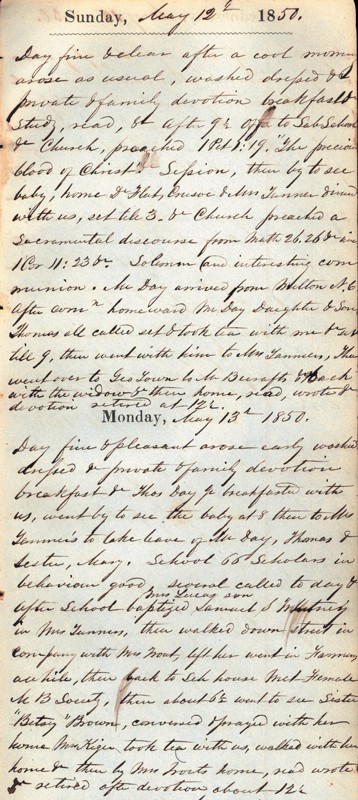 Sunday, May 12th 1850.
Day fine & clear after a cool morn
arose as usual, washed dressed &c
private & family devotion breakfast &
study, read, &c after 9½ off to Sab School
& Church, preached 1 Pet 1:19, "The precious
blood of Christ" & Session, then by to see
baby, home Dr Flat, Crusoe & Mrs Tanner dined
with us, set till 3. & Church preached a
Sacramental discourse from Math 26.26 & in
1 Cor 11:23 &c. Solemn and interesting com
munion. Mr Day arrived from Milton N.C
after comn homeward Mr Day Daughter & Son
Thomas all called set & took tea with me & sat
till 9, then went with him to Mrs Tanners, Then
went over to Geo Town to Mr & back
with the widow & then home, read, wrote &
devotion retired at 12½.
Monday, May 13th 1850.
Day fine & pleasant arose early washed
dressed & private & family devotion
breakfast & Thos Day Jr breakfasted with
us, went by to see the baby at 8 then to Mrs
Tanners to take leave of Mr Day, Thomas &
Sister, Mary. School 66 Scholars in
behaviour good, several called to day &
after School baptized Mrs Lucas son Samuel S
in Mrs Tanners, then walked down street in
company with Mrs Trout, left her went in
awhile, then back to Sch house Met Female
M B Society, then about 6½ went to see Sister
Betsy Brown, conversed & prayed with her
home Mrs Kiger took tea with us, walked with her
home & then by Mrs Trouts home, read wrote
& retired after devotion about 12½